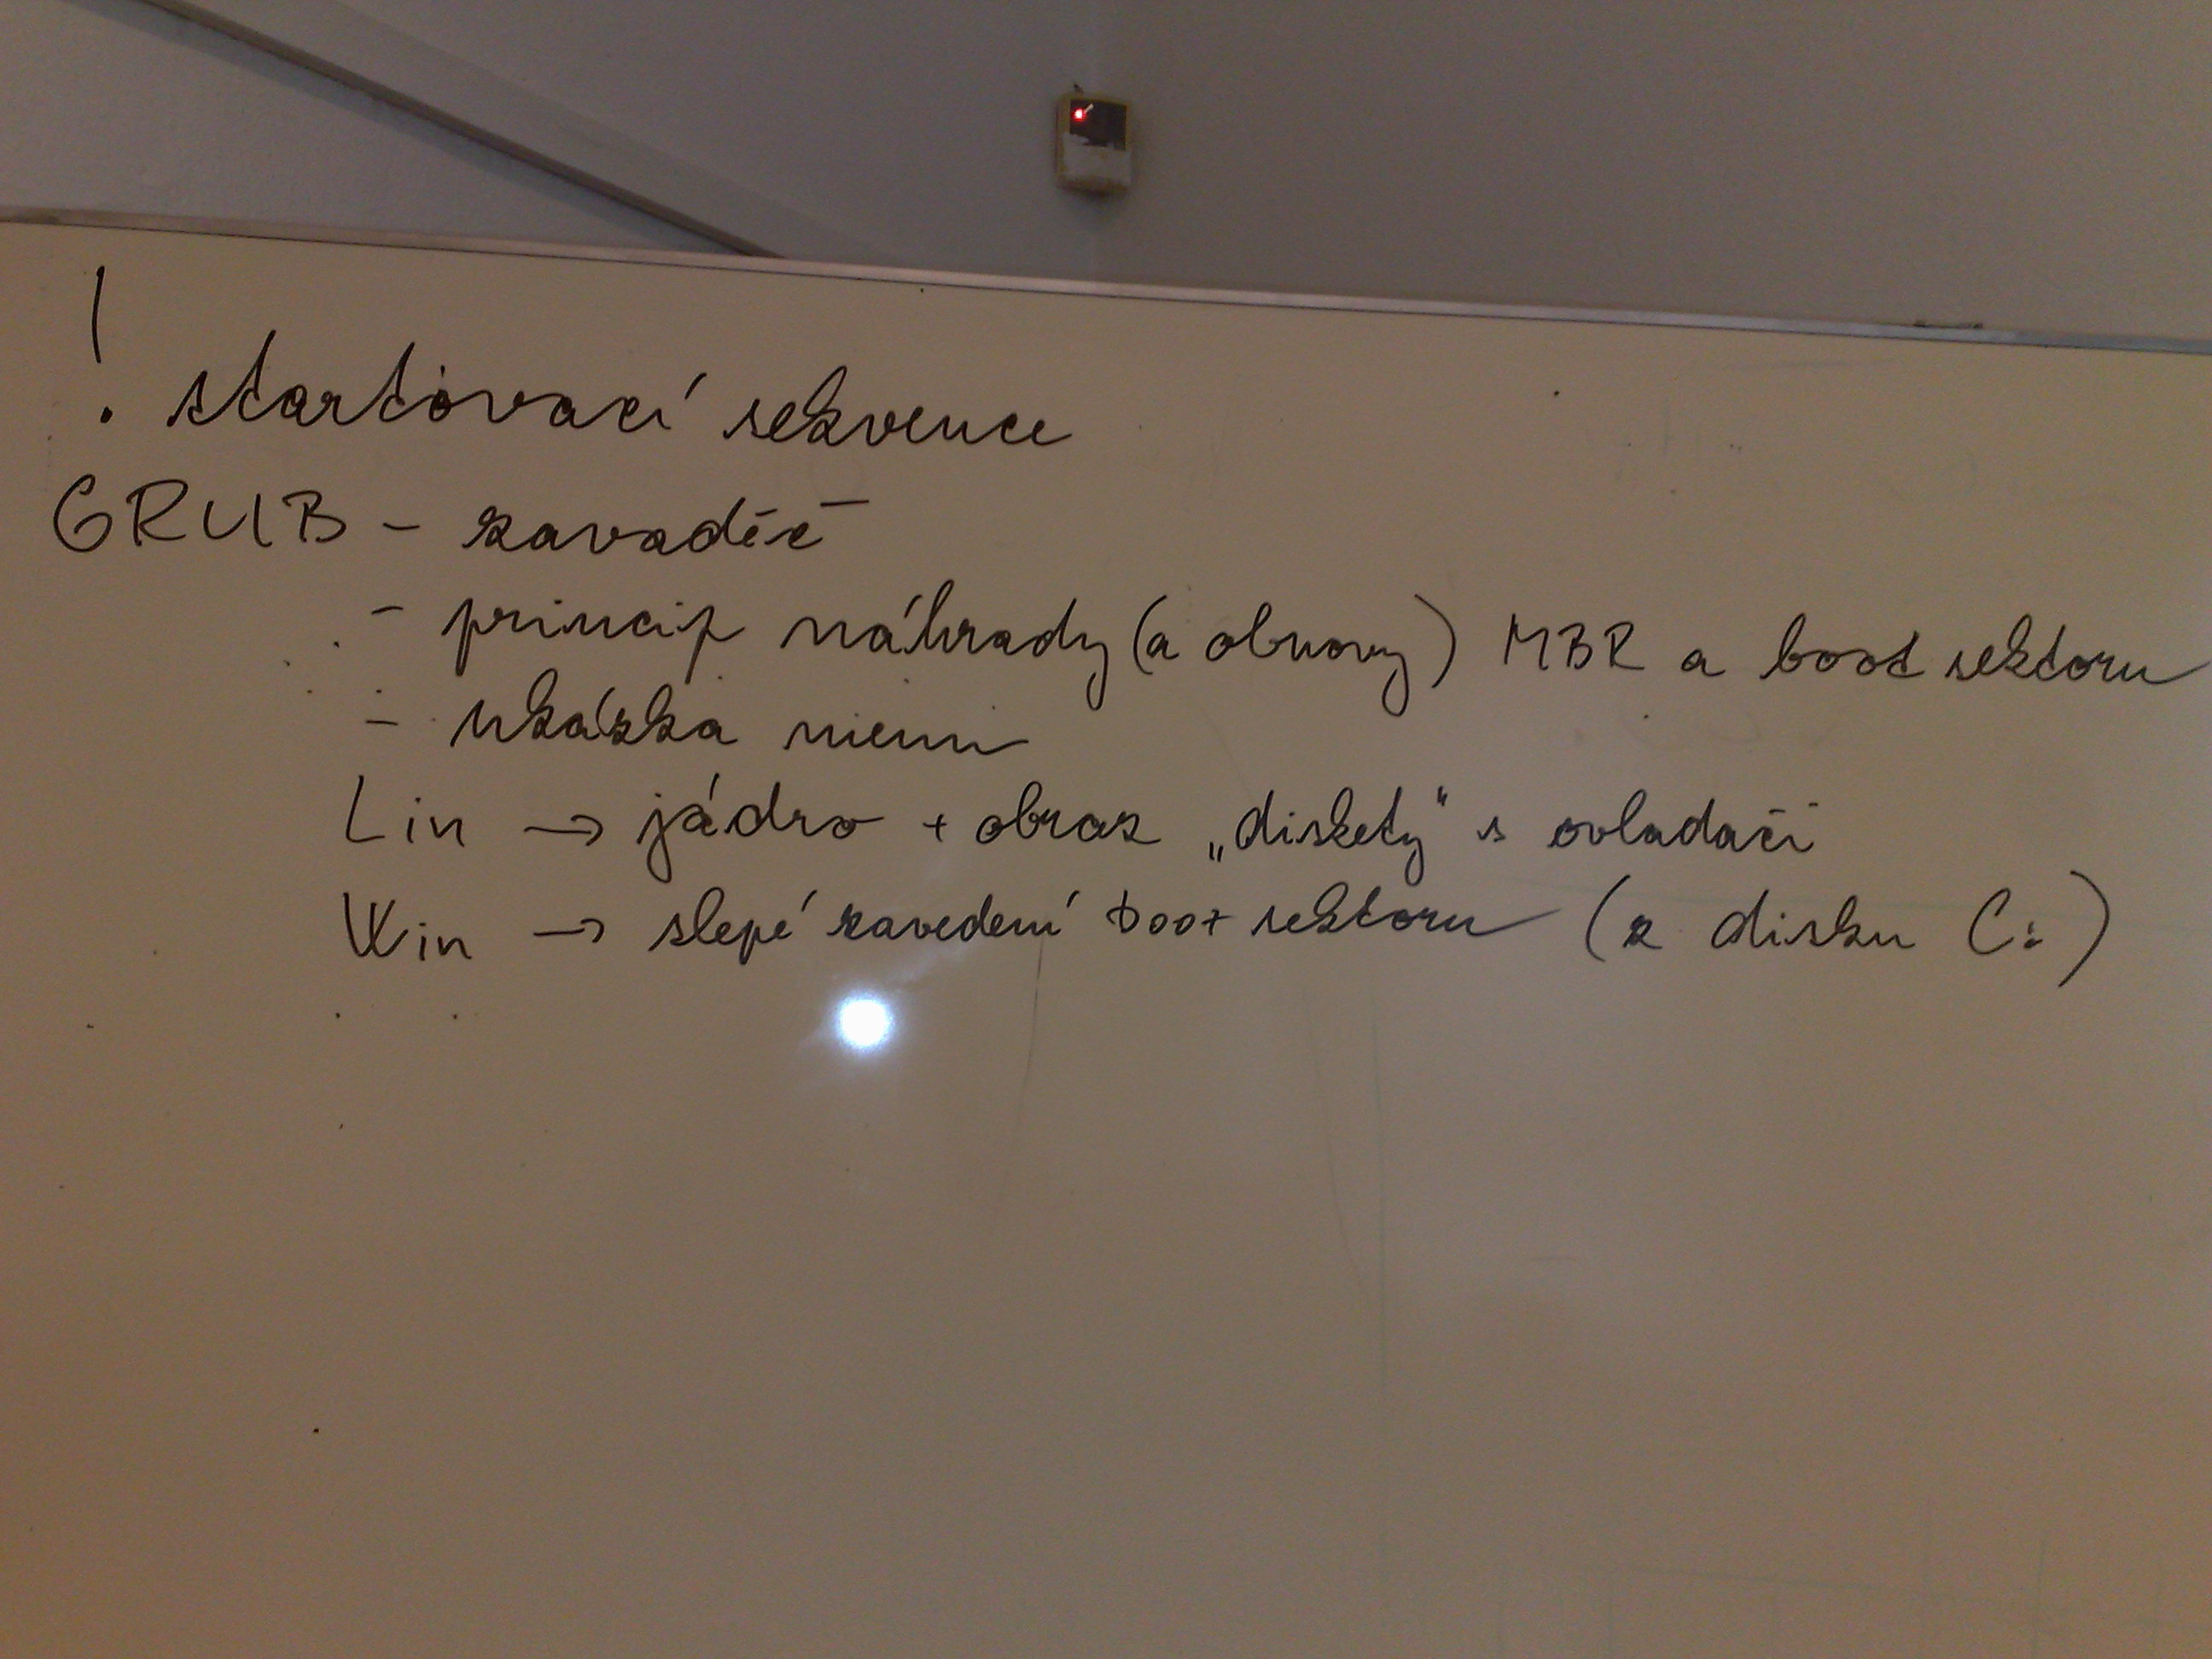 ! startovací sekvence
GRUB - zavaděč
- princip náhrady (a obnovy) MBR a boot sektoru
- ukázka menu
Lin → jádro + obraz „diskety“ s ovladači
Win → slepé zavedení boot sektoru (z disku C:)